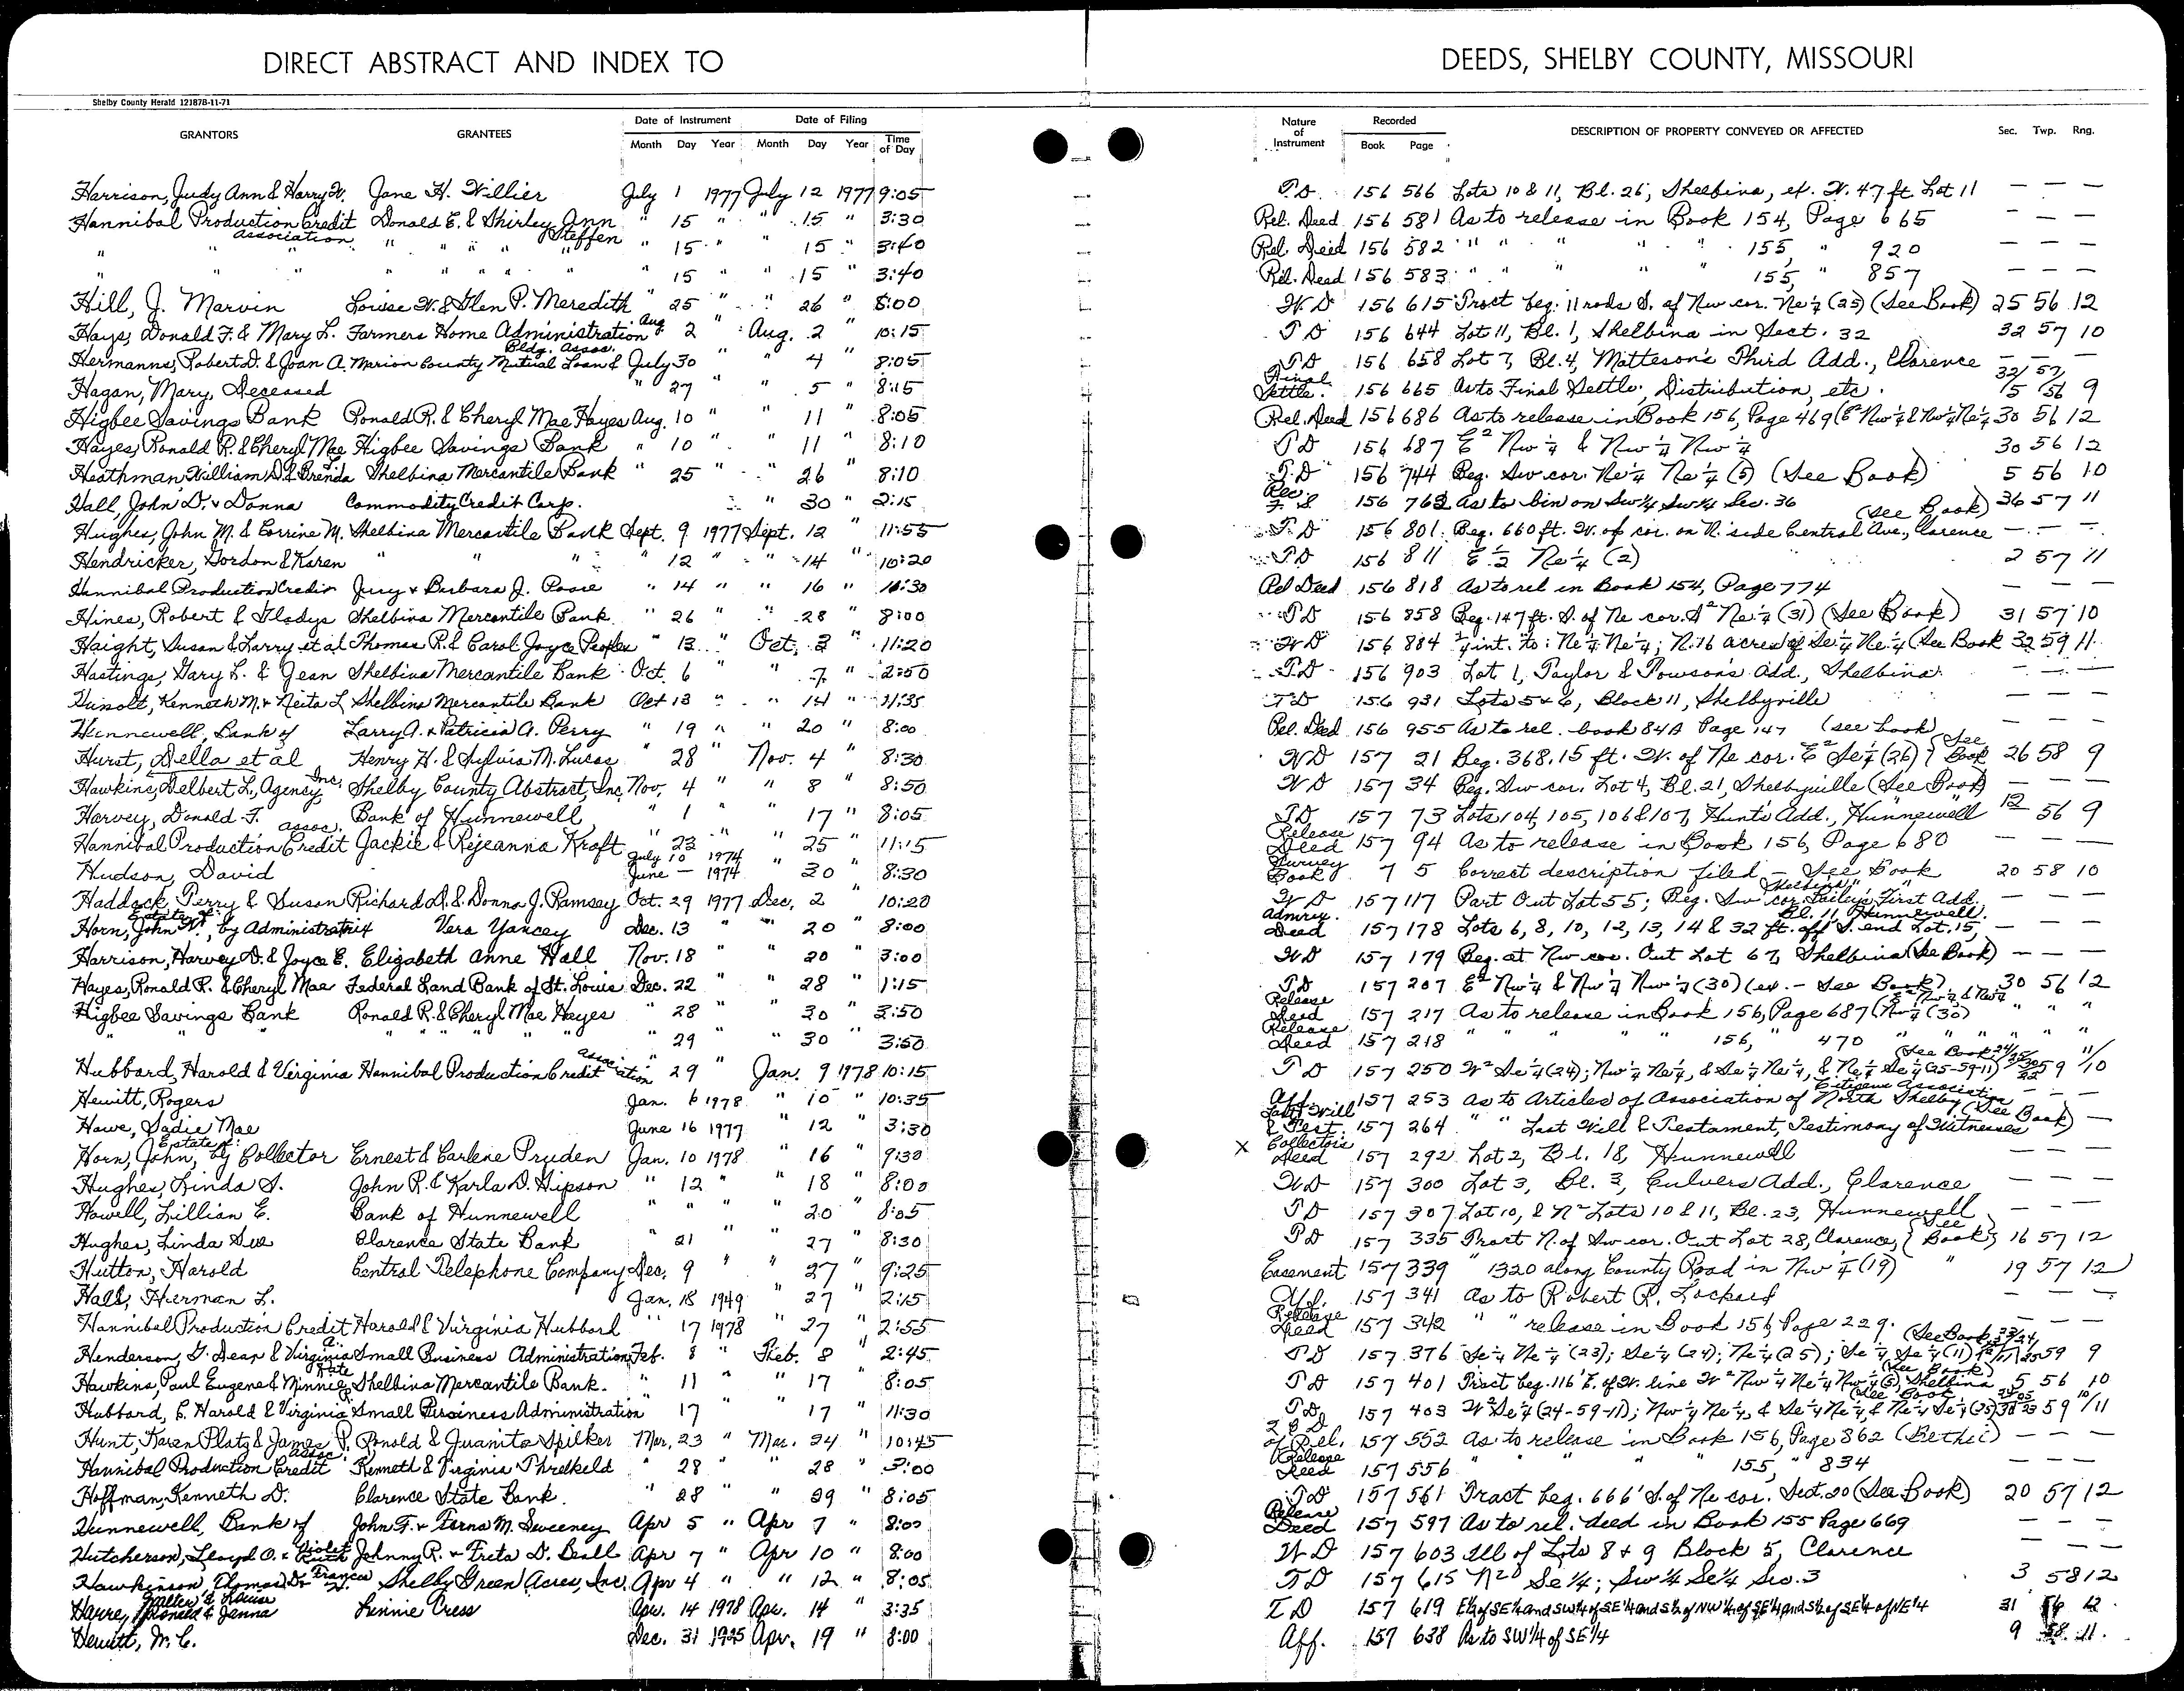 DIRECT ABSTRACT AND INDEX TO DEEDS, SHELBY COUNTY, MISSOURI
Shelby County Herald 121878-11-71
GRANTORS GRANTEES Date of Instrument Month Day Year Date of Filing Month Day Year Time of Day Nature of Instrument Recorded Book Page DESCRIPTION OF PROPERTY CONVEYED OR AFFECTED Sec. Twp. Rng.
Harrison, Judy Ann & Harry W. Jane H. Willier July 1 1977 July 12 1977 9:05 T.D. 156 566 Lots 10 & 11, Bl. 26, Shelbina, ex. W. 47 ft Lot 11 — — —
Hannibal Production Credit Association Donald E. & Shirley Ann Steffen " 15 " " 15 " 3:30 Rel. Deed 156 581 As to release in Book 154, Page 665 — — —
" " " " " " " 15 " 15 " 3:40 Rel. Deed 156 582 " " " " " 155, " 920 — — —
" " " " " " " " 15 " " 15 " 3:40 Rel. Deed 156 583 " " " " " 155, " 857 — — —
Hill, J. Marvin Louise W. & Glen P. Meredith " 25 " " 26 " 8:00 W.D 156 615 Tract beg. 11 rods S. of Nw cor. Ne¼ (25) (See Book) 25 56 12
Hays, Donald F. & Mary L. Farmers Home Administration Aug 2 " Aug. 2 " 10:15 T D 156 644 Lot 11, Bl. 1, Shelbina in Sect. 32 32 57 10
Hermanns, Robert D. & Joan A. Marion County Mutual Loan & Bldg. Assoc. July 30 " " 4 " 8:05 T D 156 658 Lot 7, Bl. 4, Matteson's Third Add., Clarence — — —
Hagan, Mary, Deceased " 27 " " 5 " 8:15 Final Settle. 156 665 As to Final Settle, Distribution, etc. 32/5 57/56 9
Higbee Savings Bank Ronald R. & Cheryl Mae Hayes Aug. 10 " " 11 " 8:05 Rel. Deed 156 686 As to release in Book 156, Page 469 (E² Nw¼ & Nw¼ Ne¼ 30 56 12
Hayes, Ronald R. & Cheryl Mae Higbee Savings Bank " 10 " " 11 " 8:10 T D 156 687 E² Nw¼ & Nw¼ Nw¼ 30 56 12
Heathman, William D. & Brenda Shelbina Mercantile Bank " 25 " 26 " 8:10 T.D 156 744 Beg. Sw cor. Ne¼ Ne¼ (5) (See Book) 5 56 10
Hall, John D. & Donna Commodity Credit Corp. " 30 " 2:15 Rec. F S 156 762 As to bin on Sw¼ Sw¼ Sec. 36 (See Book) 36 57 11
Hughes, John M. & Corrine M. Shelbina Mercantile Bank Sept. 9 1977 Sept. 12 " 11:55 T.D 156 801 Beg. 660 ft. W. of cor. on N. side Central Ave., Clarence — — —
Hendricker, Gordon & Karen " " " " 12 " " 14 " 10:20 T D 156 811 E ½ Ne¼ (2) 2 57 11
Hannibal Production Credit Jerry & Barbara J. Poore " 14 " " 16 " 10:30 Rel Deed 156 818 As to rel in Book 154, Page 774 — —
Hines, Robert & Gladys Shelbina Mercantile Bank " 26 " " 28 " 8:00 T D 156 858 Beg. 147 ft. S. of Ne cor. S² Ne¼ (31) (See Book) 31 57 10
Haight, Susan & Larry et al Thomas R. & Carol Joyce Peoples " 13 " Oct. 3 " 11:20 W D 156 884 ¼ int. to: Ne¼ Ne¼; N. 16 acres of Se¼ Ne¼ (See Book 32 59 11
Hastings, Gary L. & Jean Shelbina Mercantile Bank Oct. 6 " 7 " 2:50 T.D 156 903 Lot 1, Taylor & Towson's Add., Shelbina — — —
Hunolt, Kenneth M. & Neita L Shelbina Mercantile Bank Oct 13 " " 14 " 11:35 T D 156 931 Lots 5 & 6, Block 11, Shelbyville — — —
Hunnewell, Bank of Larry A. & Patricia A. Perry " 19 " " 20 " 8:00 Rel. Deed 156 955 As to rel. book 84A Page 147 (see book) — — —
Hurst, Della et al Henry H. & Sylvia M. Lucas " 28 " Nov. 4 " 8:30 W D 157 21 Beg. 368.15 ft. W. of Ne cor. E² Se¼ (26) (See Book 26 58 9
Hawkins, Delbert L., Agency, Inc. Shelby County Abstract, Inc. Nov. 4 " " 8 " 8:50 W D 157 34 Beg. Sw cor. Lot 4, Bl. 21, Shelbyville (See Book) — — —
Harvey, Donald F. Bank of Hunnewell " 1 " " 17 " 8:05 T D 157 73 Lots 104, 105, 106 & 107, Hunt's Add., Hunnewell 12 56 9
Hannibal Production Credit Assoc. Jackie & Rejeanna Kroft " 23 " " 25 " 11:15 Release Deed 157 94 As to release in Book 156, Page 680 — —
Hudson, David July 10 1974 June — 1974 " 30 " 8:30 Survey Book 7 5 Correct description filed — See Book 20 58 10
Haddock, Terry & Susan Richard D. & Donna J. Ramsey Oct. 29 1977 Dec. 2 " 10:20 W D 157 117 Part Out Lot 55; Beg. Sw cor. Bailey's First Add. Shelbina — — —
Horn, John W., Estate of: by Administratrix Vera Yancey Dec. 13 " " 20 " 8:00 Admrx. Deed 157 178 Lots 6, 8, 10, 12, 13, 14 & 32 ft. off S. end Lot 15, Bl. 11, Hunnewell. — — —
Harrison, Harvey D. & Joyce E. Elizabeth Anne Hall Nov. 18 " " 20 " 3:00 W D 157 179 Beg. at Nw cor. Out Lot 67, Shelbina (See Book) — — —
Hayes, Ronald R. & Cheryl Mae Federal Land Bank of St. Louis Dec. 22 " " 28 " 1:15 T D 157 207 E² Nw¼ & Nw¼ Nw¼ (30) (ex. — See Book) 30 56 12
Higbee Savings Bank Ronald R. & Cheryl Mae Hayes " 28 " " 30 " 3:50 Release Deed 157 217 As to release in Book 156, Page 687 (E² Nw¼ & Nw¼ Nw¼ (30) " " "
" " " " " " " " 29 " 30 " 3:50 Release Deed 157 218 " " " " " 156, 470 " " " "
Hubbard, Harold & Virginia Hannibal Production Credit Association " 29 " Jan. 9 1978 10:15 T D 157 250 W² Se¼ (24); Nw¼ Ne¼, & Se¼ Ne¼, & Ne¼ Se¼ (25-59-11) (See Book) 59 11/10
Hewitt, Rogers Jan. 6 1978 " 10 " 10:35 Aff. 157 253 as to Articles of Association of North Shelby Citizens Association — — —
Howe, Sadie Mae June 16 1977 " 12 " 3:30 Last Will & Test. 157 264 " " Last Will & Testament, Testimony of Witnesses (See Book) —
Horn, John, Estate of: by Collector Ernest & Carlene Pruden Jan. 10 1978 " 16 " 9:30 X Collectors Deed 157 292 Lot 2, Bl. 18, Hunnewell — — —
Hughes, Linda S. John R. & Karla D. Gipson " 12 " " 18 " 8:00 W D 157 300 Lot 3, Bl. 3, Culvers Add., Clarence — — —
Howell, Lillian E. Bank of Hunnewell " " " " 20 " 8:05 T D 157 307 Lot 10, & N² Lots 10 & 11, Bl. 23, Hunnewell — — —
Hughes, Linda Sue Clarence State Bank " 21 " " 27 " 8:30 T D 157 335 Tract N. of Sw cor. Out Lot 28, Clarence, (See Book) 16 57 12
Hutton, Harold Central Telephone Company Dec. 9 " " 27 " 9:25 Easement 157 339 " 1320 along County Road in Nw¼ (19) " 19 57 12
Hall, Herman L. Jan. 18 1949 " 27 " 2:15 Aff. 157 341 as to Robert R. Lockard — — —
Hannibal Production Credit Harold & Virginia Hubbard " 17 1978 " 27 " 2:55 Release Deed 157 342 " " release in Book 156, Page 229. — — —
Henderson, G. Dean & Virginia A. Small Business Administration Feb. 8 " Feb. 8 " 2:45 T D 157 376 Se¼ Ne¼ (23); Se¼ (24); Ne¼ (25); Se¼ Se¼ (11) (See Book) 59 9
Hawkins, Paul Eugene & Minnie Kate Shelbina Mercantile Bank. " 11 " " 17 " 8:05 T D 157 401 Tract beg. 116' E. of W. line W² Nw¼ Ne¼ Nw¼ (5), Shelbina (See Book) 5 56 10
Hubbard, C. Harold & Virginia R. Small Business Administration " 17 " " 17 " 11:30 T.D. 157 403 W² Se¼ (24-59-11); Nw¼ Ne¼, & Se¼ Ne¼, & Ne¼ Se¼ (25) (See Book 59 10/11
Hunt, Karen Platz & James P. Ronald & Juanita Spilker Mar. 23 " Mar. 24 " 10:45 of Rel. 157 552 As to release in Book 156, Page 862 (Bethel) — — —
Hannibal Production Credit Assoc. Kenneth & Virginia Threlkeld " 28 " " 28 " 3:00 Release Deed 157 556 " " " " " 155, " 834 — — —
Hoffman, Kenneth D. Clarence State Bank. " 28 " " 29 " 8:05 T D 157 561 Tract beg. 666' S. of Ne cor. Sect. 20 (See Book) 20 57 12
Hunnewell, Bank of John F. & Ferna M. Sweeney Apr 5 " Apr 7 " 8:00 Release Deed 157 597 As to rel. deed in Book 155 Page 669 — — —
Hutcherson, Lloyd O. & Violet Ruth Johnny R. & Freta D. Beall Apr 7 " Apr 10 " 8:00 W D 157 603 All of Lots 8 & 9 Block 5, Clarence — —
Hawkinson, Thomas D. & Frances Shelby Green Acres, Inc. Apr 4 " " 12 " 8:05 T D 157 615 N² Se¼; Sw¼ Se¼ Sec. 3 3 58 12
Walter & Louise Ronald & Janna Linnie Cress Apr. 14 1978 Apr. 14 " 3:35 T D 157 619 E½ of SE¼ and SW¼ of SE¼ and S½ of NW¼ of SE¼ and S½ of SE¼ of NE¼ 31 56 12
Hewitt, M. C. Dec. 31 1925 Apr. 19 " 8:00 Aff. 157 638 As to SW¼ of SE¼ 9 58 11